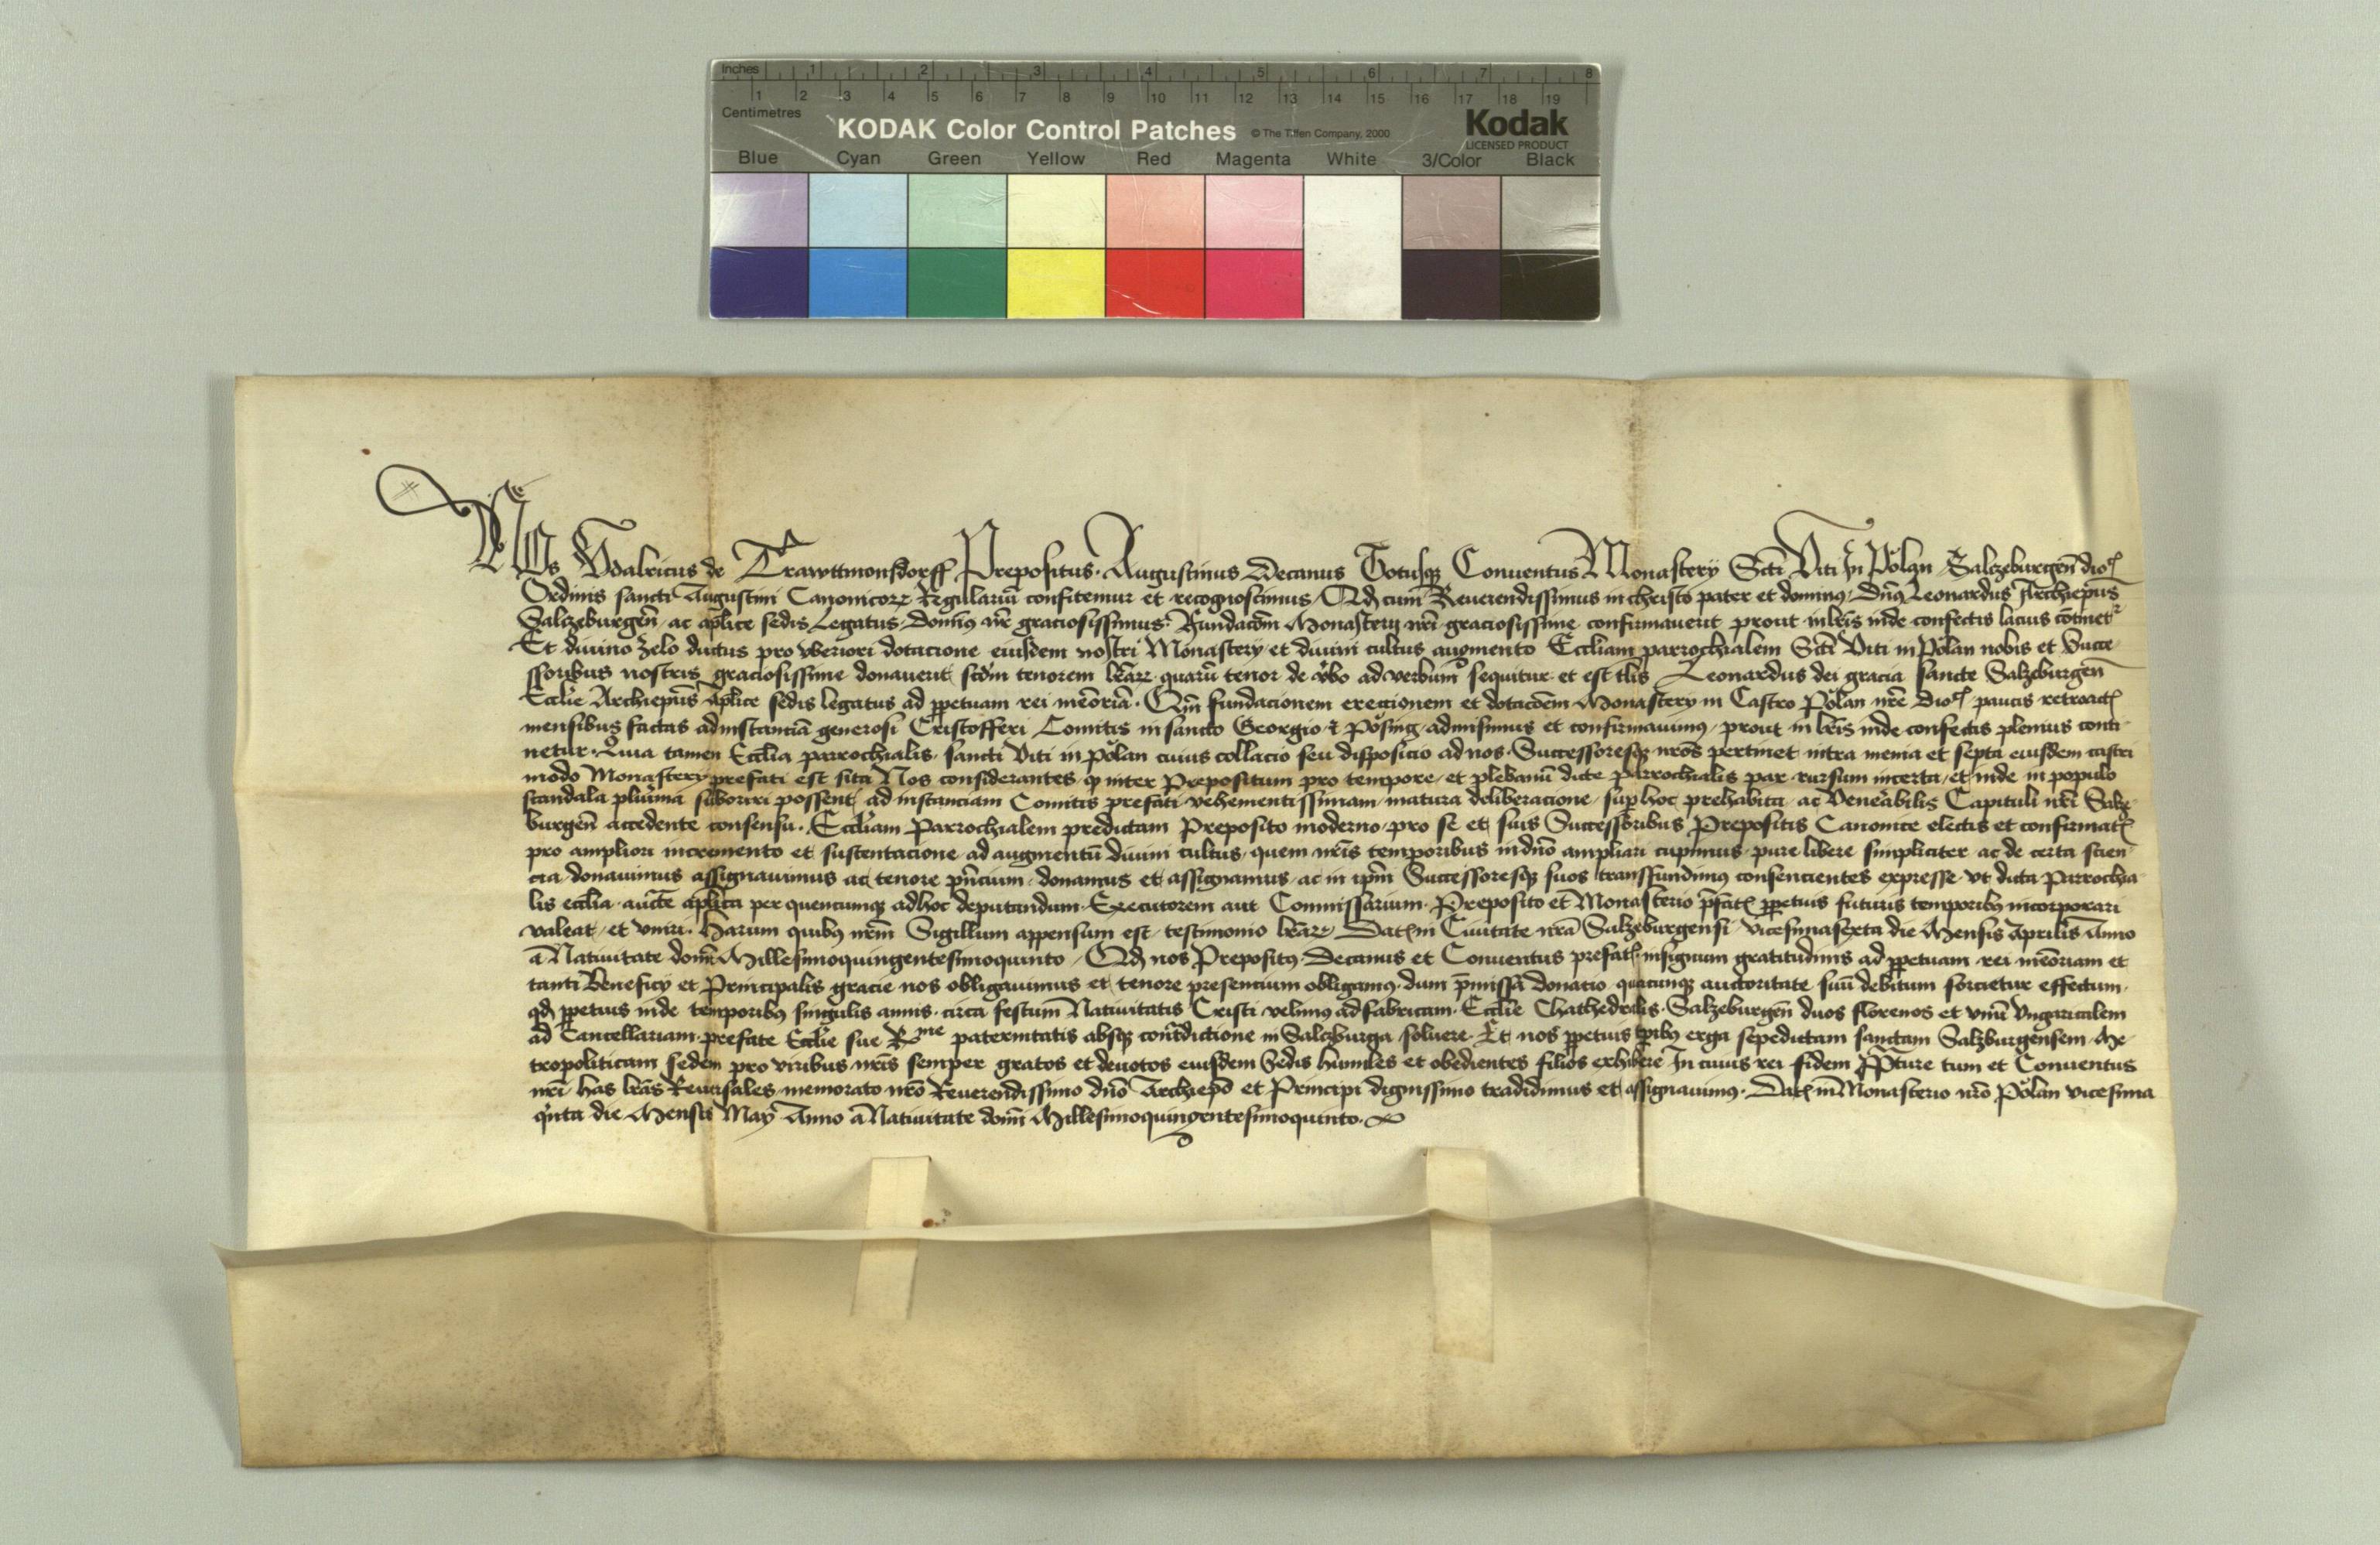 Inches 1 2 3 4 5 6 7 8
1 2 3 4 5 6 7 8 9 10 11 12 13 14 15 16 17 18 19
Centimetres
KODAK Color Control Patches © The Tiffen Company, 2000 Kodak
LICENSED PRODUCT
Blue Cyan Green Yellow Red Magenta White 3/Color Black
Nos Vdalricus de Trawttmonsdorff Prepositus. Augustinus Decanus Totusqȝ Conuentus Monastery Scti Viti In Pölan Salczburgen̄ dioc̄
Ordinis sancti Augustini Canonicorꝝ Regulariū confitemur et recognoscimus / Qd cum Reuerendissimus in christo pater et dominꝰ dn̄s Leonardus Archiep̄us
Salczeburgen̄ ac ap̄lice sedis Legatus. Dominꝰ nr̄ graciosissimus. Fundacōm Monastery nr̄i graciosissime confirmauerit prout in lr̄is inde confectis lacius cōtinetr
Et diuino zelo ductus pro vberiori dotacione eiusdem nostri Monastery et diuini cultus augmento Eccliam parrochialem Scti Viti in Pölan nobis et Succe-
ssoribus nostris graciosissime donauerit scdm tenorem lr̄arꝝ quarū tenor de v̄bo ad verbum sequitur et est tlis Leonardus dei gracia sancte Salzburgen̄
Ecclie Archiep̄us Ap̄lice sedis legatus ad ꝑpetuam rei mēoriā. Qm̄ fundacionem ereccionem et dotacōem Monastery in Castro Pölan nr̄e Dioc̄ paucis retroact̄
mensibus factas ad instanciā generosi Cristofferi Comitis in sancto Georgio et Pösing admisimus et confirmauimus / prout in lr̄is inde confectis plenius conti-
netur. Quia tamen Ecclia parrochialis sancti Viti in Pölan cuius collacio seu disposicio ad nos Successoresqȝ nr̄os pertinet intra menia et septa eiusdem castri
modo Monastery prefati est sita Nos considerantes ꝙ inter Prepositum pro tempore et plebanū dicte parrochialis par rursum incerta et inde in populo
scandala plurima suboriri possent ad instanciam Comitis prefati vehementissimam matura deliberacione suꝑ hoc prehabita ac Venerabilis Capituli nr̄i Salcz-
burgen̄ accedente consensu. Eccliam Parrochialem predictam Preposito moderno pro se et suis Successoribus Prepositis Canonice electis et confirmat̄
pro ampliori incremento et sustentacione ad augmentū diuini cultus quem nr̄is temporibus in dn̄o ampliari cupimus pure libere simpliciter ac de certa scien-
cia donauimus assignauimus ac tenore pn̄cium donamus et assignamus ac in ip̄m Successoresqȝ suos transfundimꝰ consencientes expresse vt dicta Parrochia-
lis ecclia aucte ap̄lica per quencumqȝ ad hoc deputandum Executorem aut Commissarium Preposito et Monasterio p̄fat̄ ꝑpetuis futuris temporibꝰ incorporari
valeat et vniri. Harum quibꝰ nr̄m Sigillum appensum est testimonio lr̄arꝝ Dat̄ in Ciuitate nr̄a Salzeburgensi vicesimasexta die Mensis Aprilis Anno
a Natiuitate domi Millesimoquingentesimoquinto / Qd nos Prepositꝰ Decanus et Conuentus prefat̄ in signum gratitudinis ad ꝑpetuam rei mēoriam et
tanti Beneficy et Principalis gracie nos obligauimus et tenore presencium obligamꝰ dum p̄missa donacio quacunqȝ auctoritate suū debitum sorcietur effectum.
qd ꝑpetuis inde temporibꝰ singulis annis circa festum Natiuitatis Cristi velimꝰ ad fabricam Ecclie Chathedralis Salzeburgen̄ duos florenos et vnū Vngaricalem
ad Cancellariam prefate Ecclie sue Rme paternitatis absqȝ contradictione in Salczburga soluere Et nos ꝑpetuis tꝑibꝰ erga sepedictam sanctam Salzburgensem Me-
tropoliticam sedem pro viribus nr̄is semper gratos et deuotos eiusdem Sedis humiles et obedientes filios exhibere In cuius rei fidem Pp̄iture tum et Conuentus
nr̄i has lr̄as Reuersales memorato nr̄o Reuerendissimo dn̄o Archiep̄o et Principi dignissimo tradidimus et assignauimꝰ. Dat̄ in Monasterio nr̄o Pölan vicesima
q̄nta die Mensis May Anno a Natiuitate domi Millesimoquingentesimoquinto.